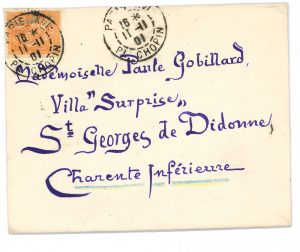 PARIS XVI
18 *
11 -11
01
PL. CHOPIN
18 *
11 -11
01
PL. CHOPIN
Mademoiselle Paule Gobillard,
Villa "Surprise"
St Georges de Didonne
Charente Inférieure